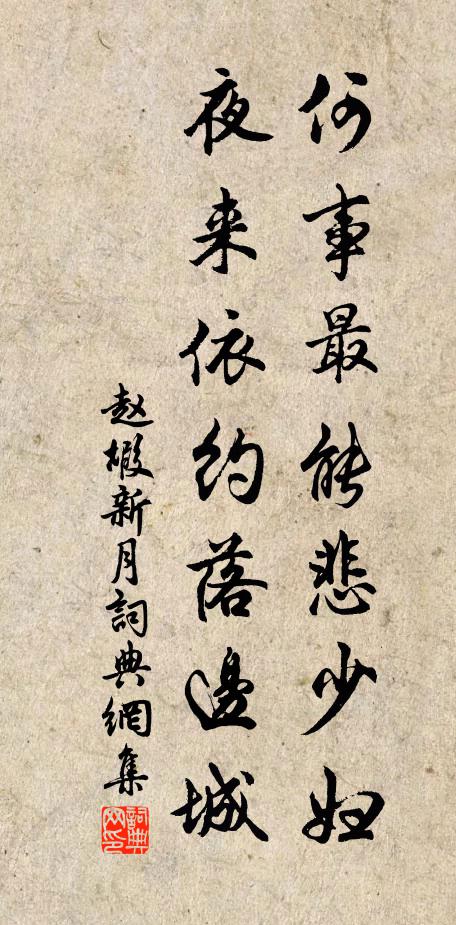 何事最能悲少妇
夜来依约落邊城
赵嘏新月詞典網集
詞典網印